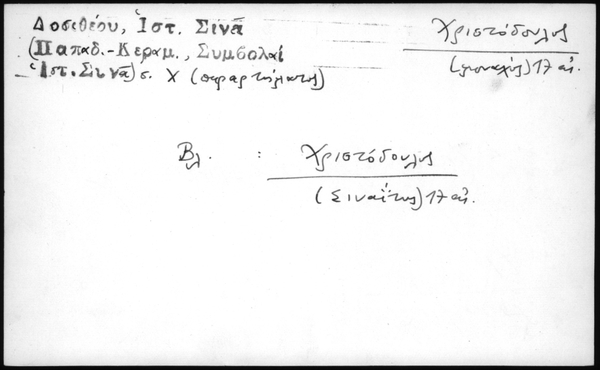 Δοσιθέου, Ἱστ. Σινᾶ
(Παπαδ.-Κεραμ., Συμβολαί
Ἱστ. Σινᾶ) σ. Χ (παραρτήματος)
Χριστόδουλος
(μοναχός) 17 αἰ.
Βλ. : Χριστόδουλος
(Σιναΐτης) 17 αἰ.